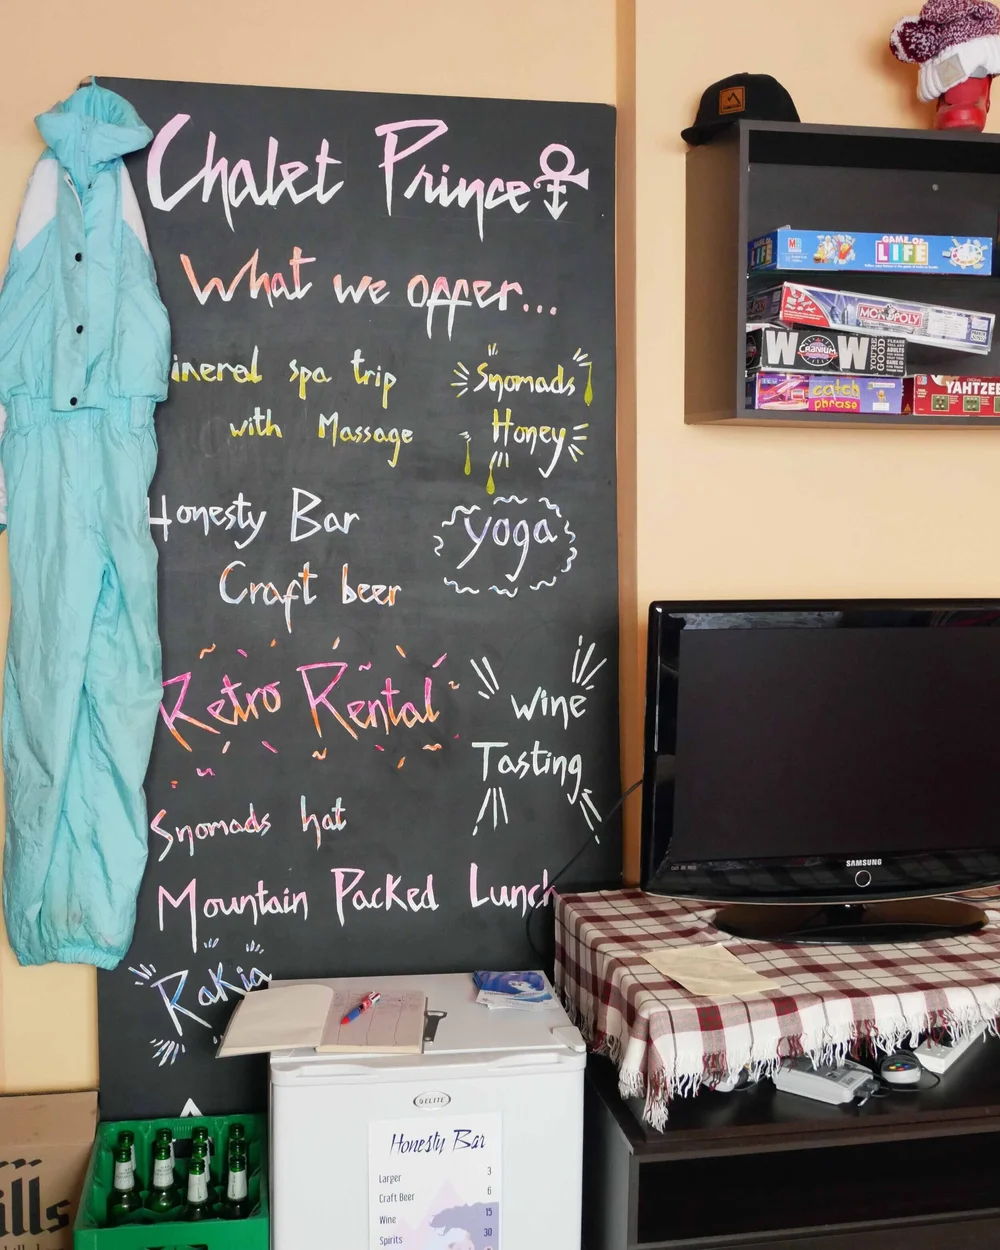 Chalet Prince
What we offer...
ineral spa trip
with Massage
Snomads
Honey
Honesty Bar
Craft beer
yoga
Retro Rental
Wine
Tasting
Snomads hat
Mountain Packed Lunch
Rakia
GAME OF
LIFE
MONOPOLY
W CRANIUM W
YOU'RE GOOD
catch
phrase
YAHTZEE
SAMSUNG
ills
Honesty Bar
Larger 3
Craft Beer 6
Wine 15
Spirits 30